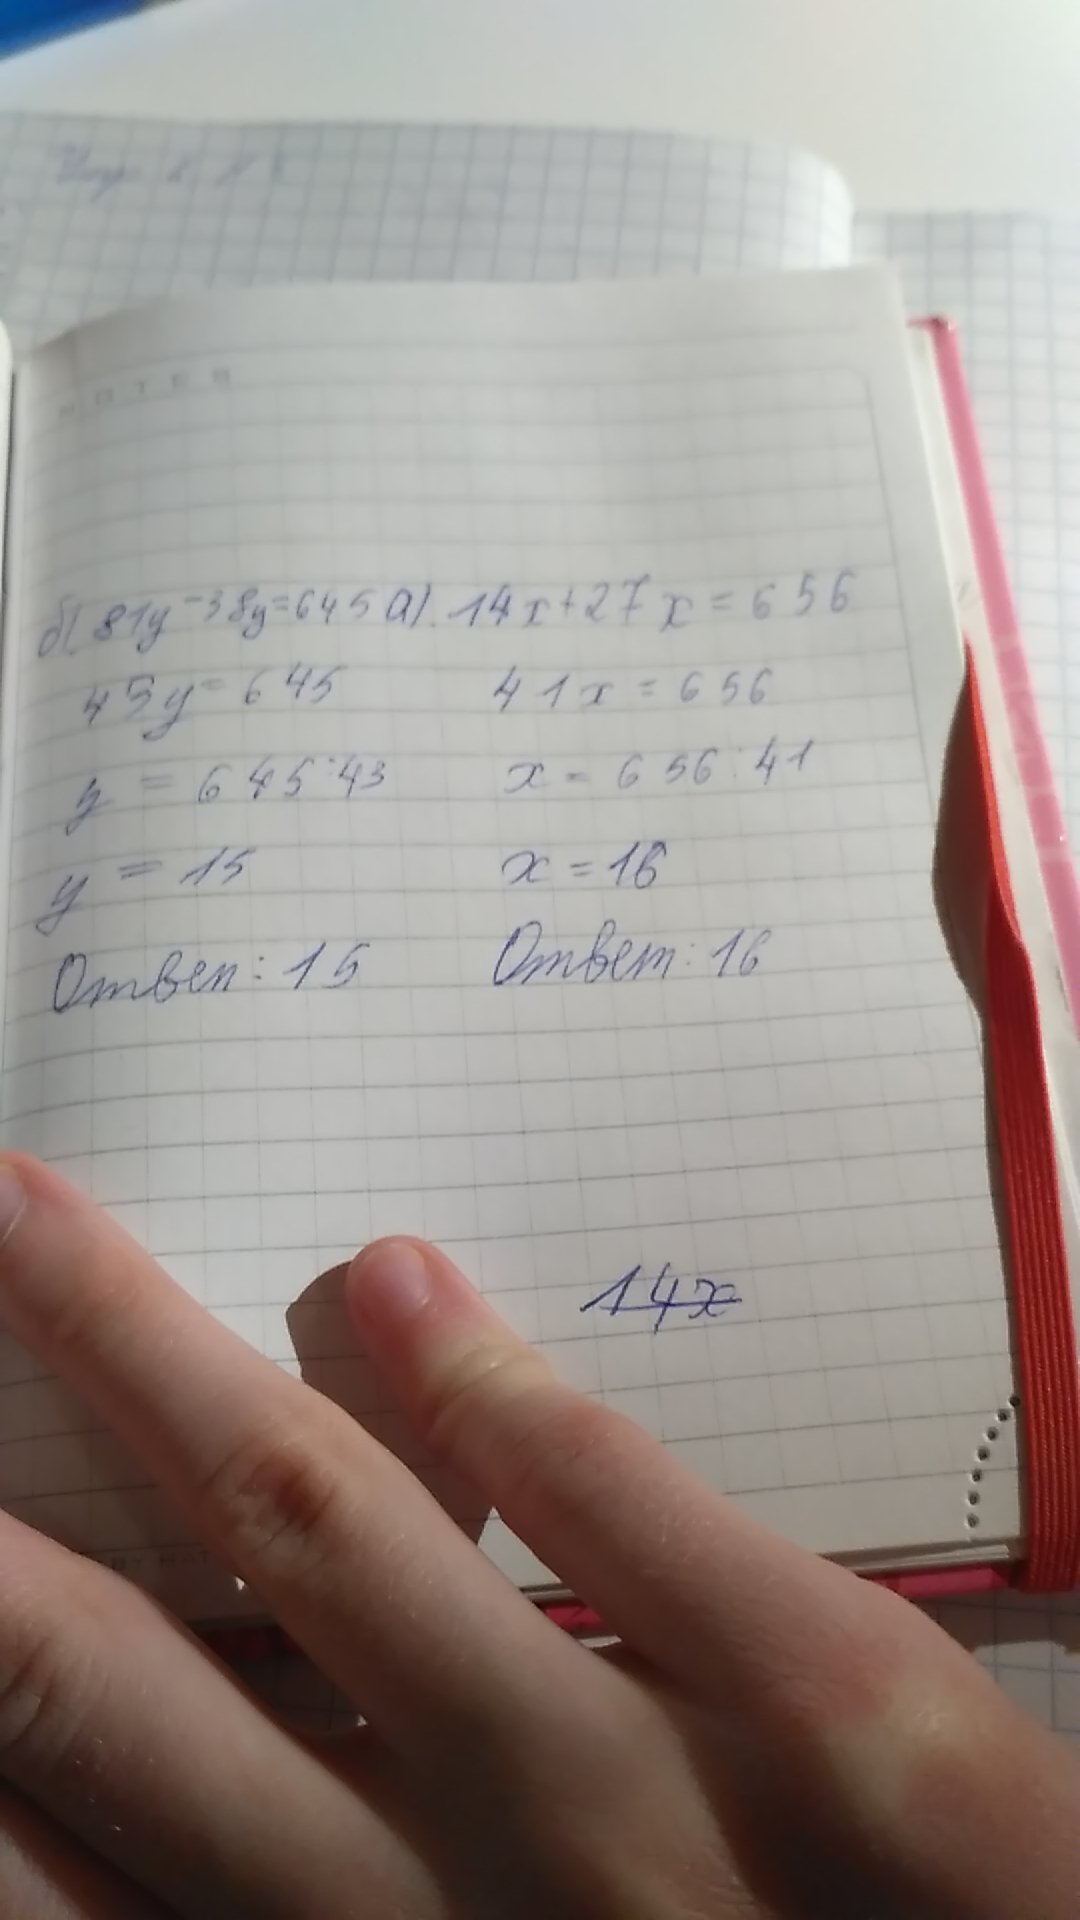 NOTES
б) 81y-38y=645
43y=645
y=645:43
y=15
Ответ: 15
а). 14x+27x=656
41x=656
x=656:41
x=16
Ответ: 16
14x